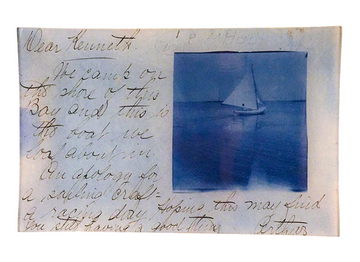 Dear Kenneth.
We camp on
the shore of this
Bay and this is
the boat we
about in
An apology for
a sailing craft-
a racing dory. Hoping this may find
you still having a good time
Arthur.